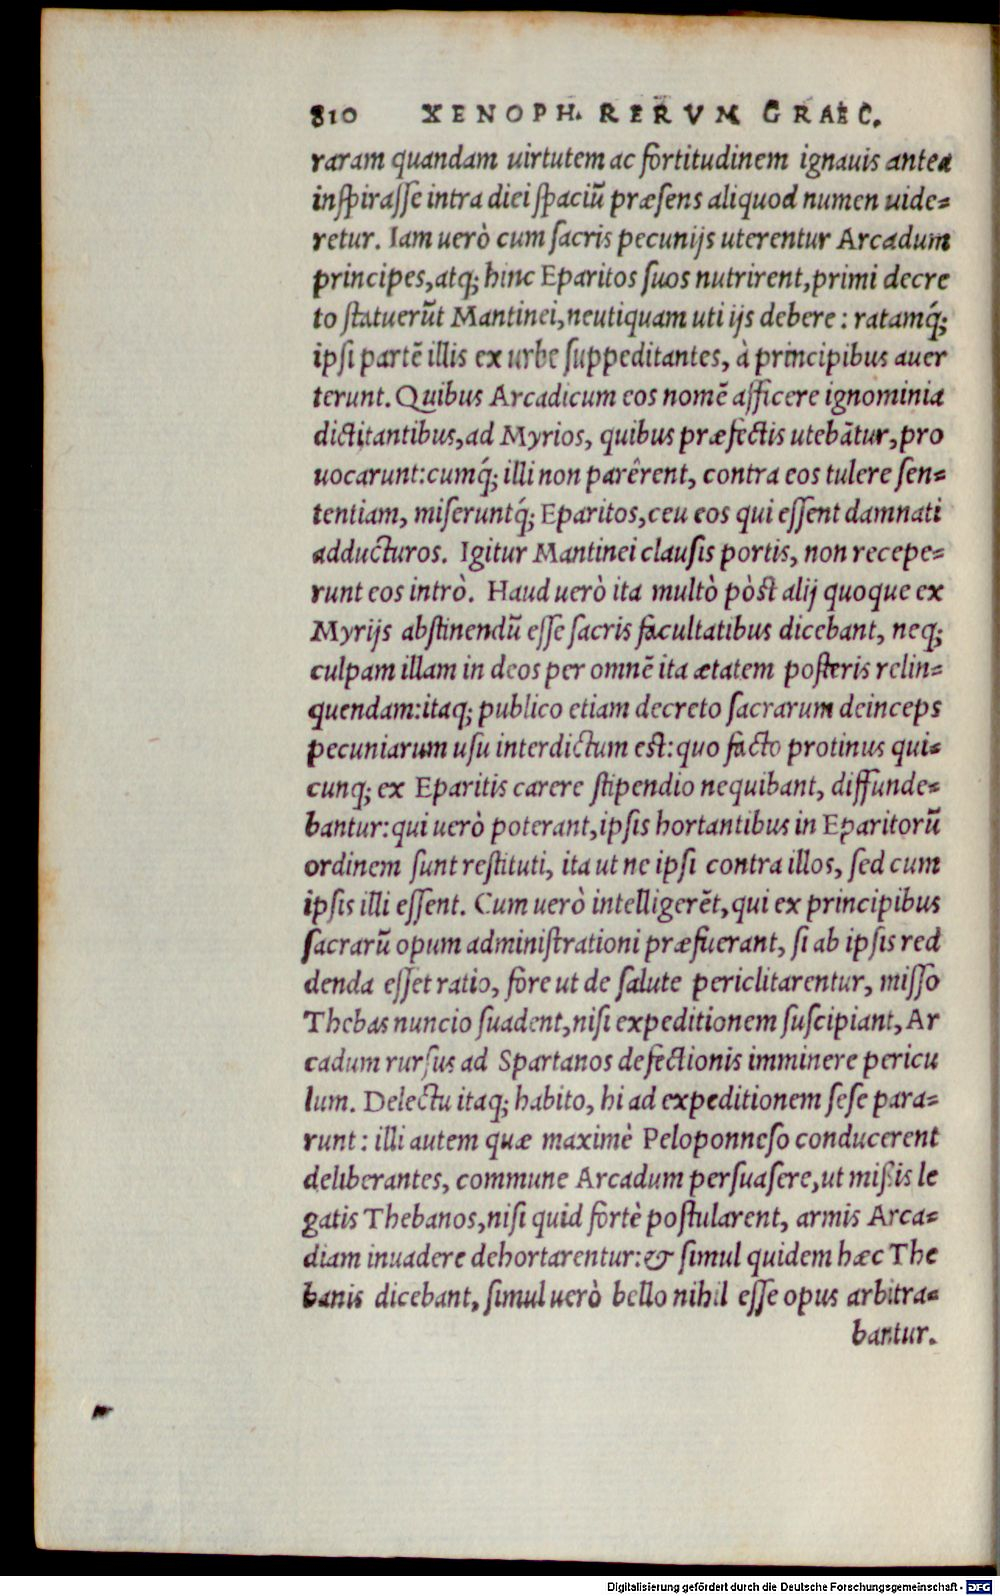 810 XENOPH. RERVM GRAEC.
raram quandam uirtutem ac fortitudinem ignauis antea
inspirasse intra diei spaciū præsens aliquod numen uide=
retur. Iam uerò cum sacris pecunijs uterentur Arcadum
principes, atq; hinc Eparitos suos nutrirent, primi decre
to statuerūt Mantinei, neutiquam uti ijs debere: ratamq́;
ipsi partē illis ex urbe suppeditantes, à principibus auer
terunt. Quibus Arcadicum eos nomē afficere ignominia
dictitantibus, ad Myrios, quibus præfectis utebātur, pro
uocarunt: cumq́; illi non parêrent, contra eos tulere sen=
tentiam, miseruntq́; Eparitos, ceu eos qui essent damnati
adducturos. Igitur Mantinei clausis portis, non recepe=
runt eos intrò. Haud uerò ita multò pòst alij quoque ex
Myrijs abstinendū esse sacris facultatibus dicebant, neq;
culpam illam in deos per omnē ita ætatem posteris relin=
quendam: itaq; publico etiam decreto sacrarum deinceps
pecuniarum usu interdictum est: quo facto protinus qui=
cunq; ex Eparitis carere stipendio nequibant, diffunde=
bantur: qui uerò poterant, ipsis hortantibus in Eparitorū
ordinem sunt restituti, ita ut ne ipsi contra illos, sed cum
ipsis illi essent. Cum uerò intelligerēt, qui ex principibus
sacrarū opum administrationi præfuerant, si ab ipsis red
denda esset ratio, fore ut de salute periclitarentur, misso
Thebas nuncio suadent, nisi expeditionem suscipiant, Ar
cadum rursus ad Spartanos defectionis imminere pericu
lum. Delectu itaq; habito, hi ad expeditionem sese para=
runt: illi autem quæ maximè Peloponneso conducerent
deliberantes, commune Arcadum persuasere, ut mißis le
gatis Thebanos, nisi quid fortè postularent, armis Arca=
diam inuadere dehortarentur: & simul quidem hæc The
banis dicebant, simul uerò bello nihil esse opus arbitra=
bantur.
Digitalisierung gefördert durch die Deutsche Forschungsgemeinschaft - DFG